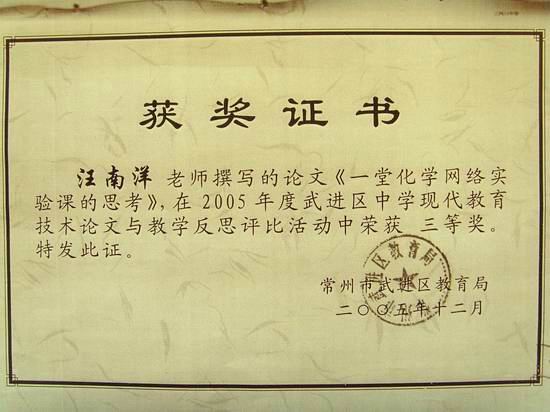 获奖证书
汪南洋 老师撰写的论文《一堂化学网络实
验课的思考》，在 2005 年度武进区中学现代教育
技术论文与教学反思评比活动中荣获 三等奖。
特发此证。
常州市武进区教育局
二〇〇五年十二月
武进区教育局